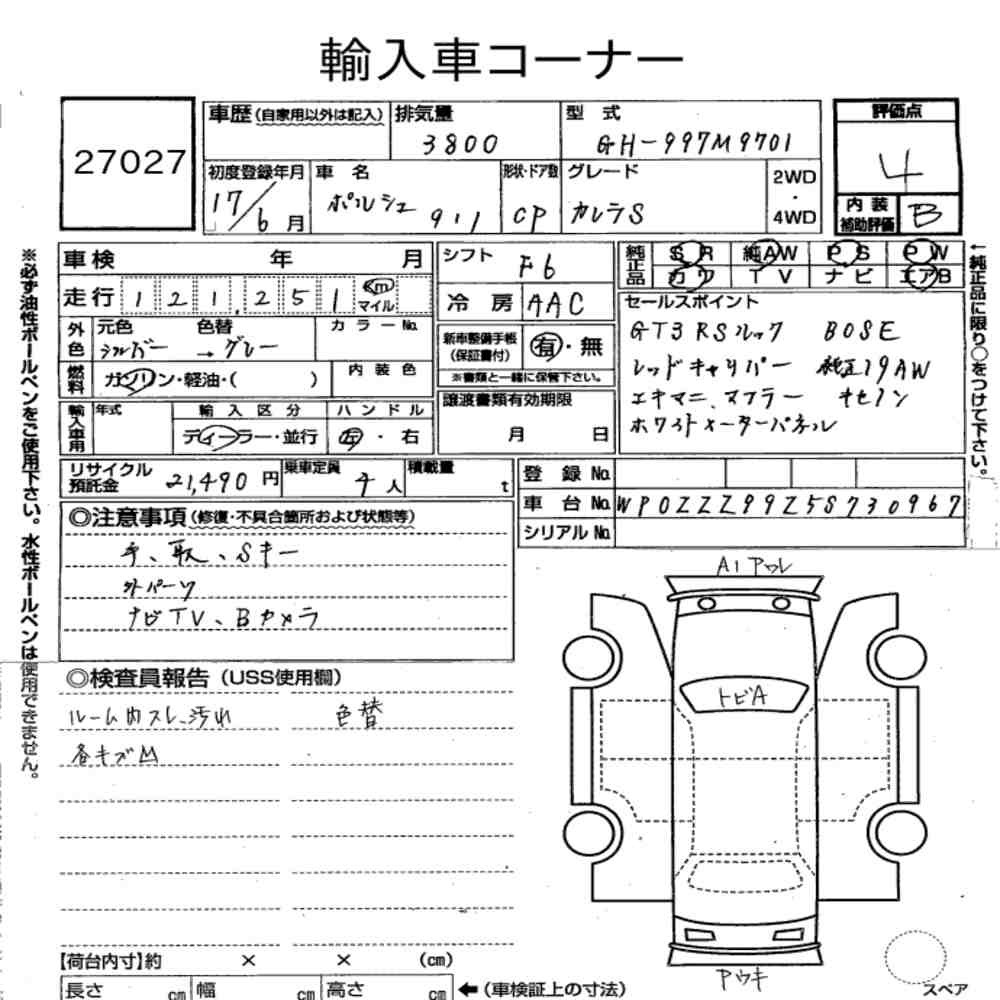 輸入車コーナー
27027
車歴(自家用以外は記入) 排気量 3800 型式 GH-997M9701
初度登録年月 17/6月 車名 ポルシェ 911 形状・ドア数 CP グレード カレラS 2WD・4WD
評価点 4
内装補助評価 B
車検 年 月
走行 121,251 km マイル
シフト F6
冷房 AAC
純正品 SR 純AW PS PW
カワ TV ナビ エアB
外色 元色 シルバー 色替 → グレー カラーNo.
燃料 ガソリン・軽油・( ) 内装色
新車整備手帳(保証書付) 有・無
※書類と一緒に保管下さい。
セールスポイント
GT3RSルック BOSE
レッドキャリパー 純正19AW
エキマニ、マフラー キセノン
ホワイトメーターパネル
輸入車用 年式 輸入区分 ディーラー・並行 ハンドル 左・右
譲渡書類有効期限 月 日
リサイクル預託金 21,490円 乗車定員 4人 積載量 t
登録No.
車台No. WP0ZZZ99Z5S730967
シリアルNo.
◎注意事項(修復・不具合箇所および状態等)
手、取、Sキー
外パーツ
ナビTV、Bカメラ
◎検査員報告(USS使用欄)
ルーム内スレ、汚れ 色替
各キズ凹
A1 アワレ
トビA
アウキ
スペア
【荷台内寸】約 × × (cm)
長さ cm 幅 cm 高さ cm ←(車検証上の寸法)
※必ず油性ボールペンをご使用下さい。水性ボールペンは使用できません。
←純正品に限り○をつけて下さい。